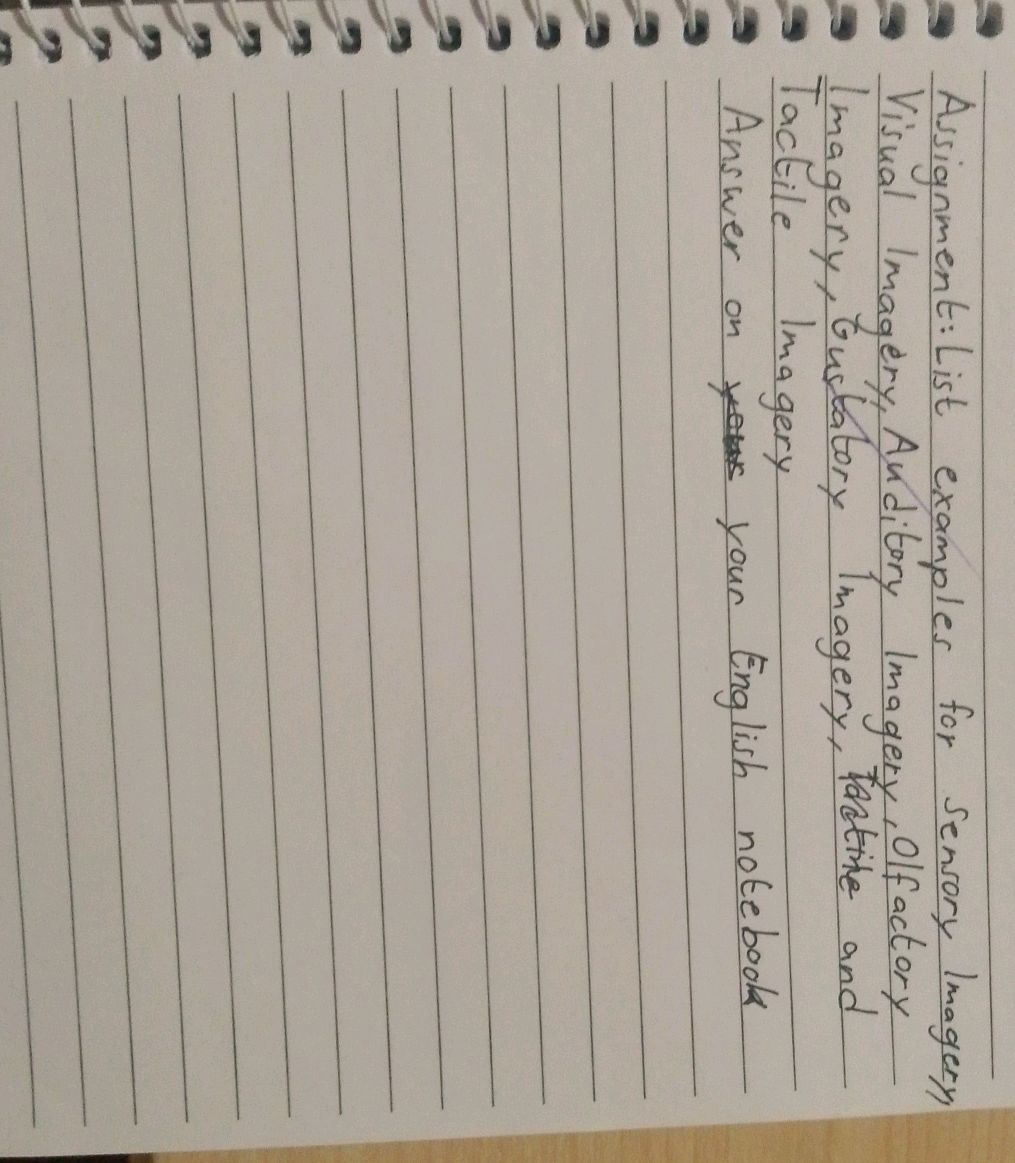 Assignment: List examples for Sensory Imagery,
Visual Imagery, Auditory Imagery, Olfactory
Imagery, Gustatory Imagery, and
Tactile Imagery
Answer on your your English notebook